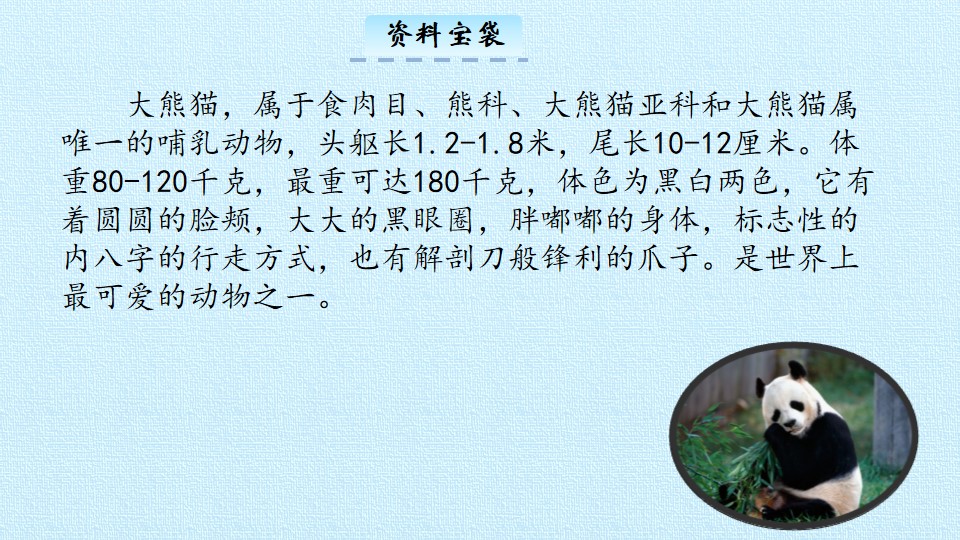 资料宝袋
大熊猫，属于食肉目、熊科、大熊猫亚科和大熊猫属
唯一的哺乳动物，头躯长1.2-1.8米，尾长10-12厘米。体
重80-120千克，最重可达180千克，体色为黑白两色，它有
着圆圆的脸颊，大大的黑眼圈，胖嘟嘟的身体，标志性的
内八字的行走方式，也有解剖刀般锋利的爪子。是世界上
最可爱的动物之一。